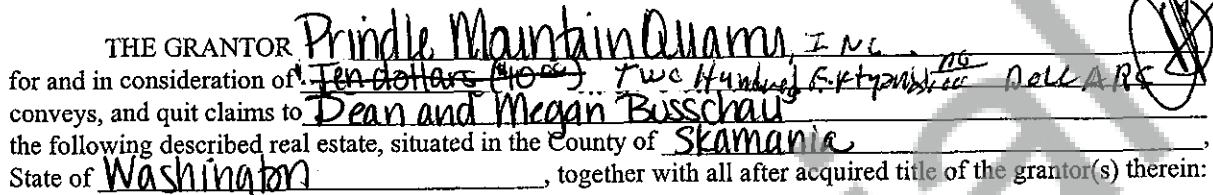 THE GRANTOR Prindle Mountain Quarry, INC.
for and in consideration of Ten dollars ($10.00) Two Hundred Fifty and no/100 DollARS
conveys, and quit claims to Dean and Megan Busschau
the following described real estate, situated in the County of Skamania,
State of Washington, together with all after acquired title of the grantor(s) therein: